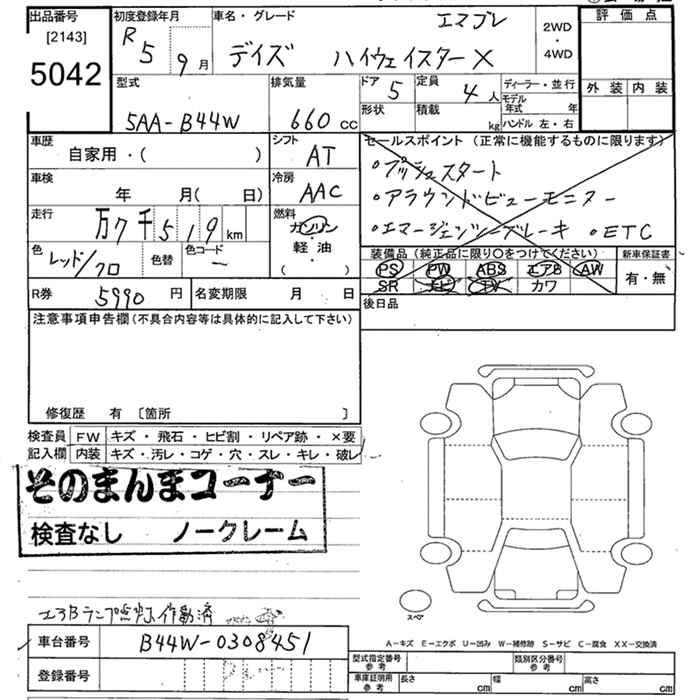 出品番号 初度登録年月 車名・グレード エマブレ 評価点
[2143] R 5 9月 デイズ ハイウェイスターX 2WD・4WD
5042
型式 排気量 ドア 5 定員 4人 ディーラー・並行 外装 内装
5AA-B44W 660cc 形状 積載 kg モデル年式 年
ハンドル 左・右
車歴 シフト セールスポイント(正常に機能するものに限ります)
自家用・( ) AT ・プッシュスタート
車検 冷房 ・アラウンドビューモニター
年 月( 日) AAC
走行 万7千519km 燃料 ・エマージェンシーブレーキ ・ETC
ガソリン
色 レッド/クロ 色替 色コード ー 軽・油 装備品(純正品に限り〇をつけてください) 新車保証書
( ) PS PW ABS エアB AW 有・無
R券 5990円 名変期限 月 日 SR ナビ TV カワ
後日品
注意事項申告欄(不具合内容等は具体的に記入して下さい)
修復歴 有 〔箇所 〕
検査員 FW キズ・飛石・ヒビ割・リペア跡・×要
記入欄 内装 キズ・汚レ・コゲ・穴・スレ・キレ・破レ
そのまんまコーナー
検査なし ノークレーム
スペア
エアBランプ点灯 作動済
A-キズ E-エクボ U-凹み W-補修跡 S-サビ C-腐食 XX-交換済
車台番号 B44W-0308451
型式指定番号 参考 類別区分番号 参考
登録番号
車庫証明用 参考 長さ cm 幅 cm 高さ cm